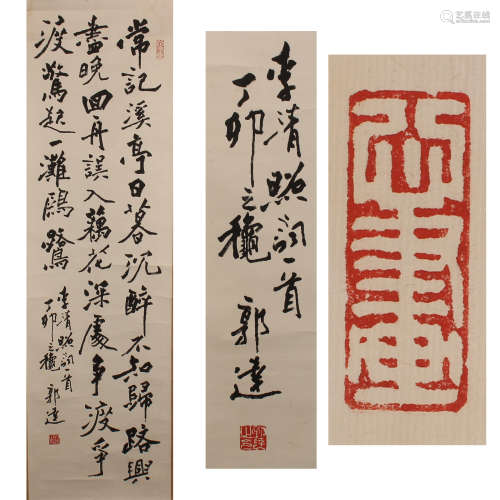 常記溪亭日暮沉醉不知歸路興
盡晚回舟誤入藕花深處爭渡爭
渡驚起一灘鷗鷺
李清照詞一首
丁卯之穐 郭達
李清照詞一首
丁卯之穐 郭達